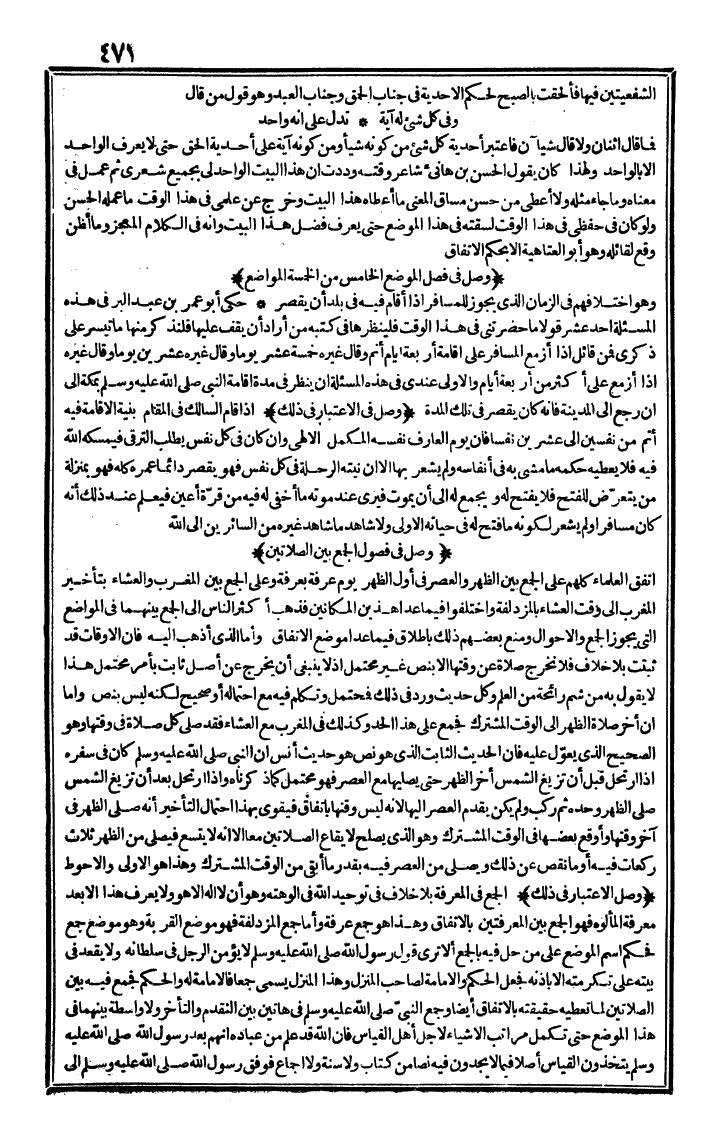 ٤٧١
الشفعيتين فيها فألحقت بالصبح لحكم الاحدية فى جناب الحق وجناب العبد وهو قول من قال
وفى كل شئ له آية * تدل على انه واحد
فما قال اثنان ولا قال شيا آن فاعتبر أحدية كل شئ من كونه شيأ ومن كونه آية على أحدية الحق حتى لا يعرف الواحد
الا بالواحد ولهذا كان يقول الحسن بن هانى شاعر وقته وددت ان هذا البيت الواحد لى بجميع شعرى ثم عمل فى
معناه وما جاء مثله ولا أعطى من حسن مساق المعنى ما أعطاه هذا البيت وخرج عن علمى فى هذا الوقت ما عمله الحسن
ولو كان فى حفظى فى هذا الوقت لسقته فى هذا الموضع حتى يعرف فضل هذا البيت وانه فى الكلام المعجز وما أظن
وقع لقائله وهو أبو العتاهية الا بحكم الاتفاق
﴿وصل فى فصل الموضع الخامس من الخمسة المواضع﴾
وهو اختلافهم فى الزمان الذى يجوز للمسافر اذا أقام فيه فى بلد أن يقصر * حكى أبو عمر بن عبد البر فى هذه
المسئلة احد عشر قولا ما حضرتنى فى هذا الوقت فلينظرها فى كتبه من أراد أن يقف عليها فلنذكر منها ما تيسر على
ذكرى فمن قائل اذا أزمع المسافر على اقامة أربعة ايام أتم وقال غيره خمسة عشر يوما وقال غيره عشرين يوما وقال غيره
اذا أزمع على أكثر من أربعة أيام والاولى عندى فى هذه المسئلة ان ينظر فى مدة اقامة النبى صلى الله عليه وسلم بمكة الى
ان رجع الى المدينة فانه كان يقصر فى تلك المدة ﴿وصل فى الاعتبار فى ذلك﴾ اذا قام السالك فى المقام بنية الاقامة فيه
أتم من نفسين الى عشرين نفسا فان يوم العارف نفسه المكمل الالهى وان كان فى كل نفس يطلب الترقى فيمسكه الله
فيه فلا يعطيه حكمه ما مشى به فى أنفاسه ولم يشعر بها الا ان نيته الرحلة فى كل نفس فهو يقصر دائما عمره كله فهو بمنزلة
من يتعرّض للفتح فلا يفتح له ويجمع له الى أن يموت فيرى عند موته ما أخفى له فيه من قرّة أعين فيعلم عند ذلك أنه
كان مسافرا ولم يشعر لكونه ما فتح له فى حياته الاولى ولا شاهد ما شاهد غيره من السائرين الى الله
﴿وصل فى فصول الجمع بين الصلاتين﴾
اتفق العلماء كلهم على الجمع بين الظهر والعصر فى أول الظهر يوم عرفة بعرفة وعلى الجمع بين المغرب والعشاء بتأخير
المغرب الى وقت العشاء بالمزدلفة واختلفوا فيما عدا هذين المكانين فذهب أكثر الناس الى الجمع بينهما فى المواضع
التى يجوز الجمع والاحوال ومنع بعضهم ذلك باطلاق فيما عدا موضع الاتفاق وأما الذى أذهب اليه فان الاوقات قد
ثبتت بلا خلاف فلا نخرج صلاة عن وقتها الا بنص غير محتمل اذ لا ينبغى أن يخرج عن أصل ثابت بأمر محتمل هذا
لا يقول به من شم رائحة من العلم وكل حديث ورد فى ذلك فمحتمل وتكلم فيه مع احتماله أو صحيح لكنه ليس بنص واما
ان أخر صلاة الظهر الى الوقت المشترك فجمع على هذا الحد وكذلك فى المغرب مع العشاء فقد صلى كل صلاة فى وقتها وهو
الصحيح الذى يعوّل عليه فان الحديث الثابت الذى هو نص هو حديث أنس ان النبى صلى الله عليه وسلم كان فى سفره
اذا ارتحل قبل أن تزيغ الشمس أخر الظهر حتى يصليها مع العصر فهو محتمل كما ذكرناه واذا ارتحل بعد أن تزيغ الشمس
صلى الظهر وحده ثم ركب ولم يكن يقدم العصر اليها لانه ليس وقتها باتفاق فيقوى بهذا احتمال التأخير أنه صلى الظهر فى
آخر وقتها وأوقع بعضها فى الوقت المشترك وهو الذى يصلح لايقاع الصلاتين معا الا انه لا يتسع فيصلى من الظهر ثلاث
ركعات فيه أو ما نقص عن ذلك ويصلى من العصر فيه بقدر ما أبقى من الوقت المشترك وهذا هو الاولى والاحوط
﴿وصل الاعتبار فى ذلك﴾ الجمع فى المعرفة بلا خلاف فى توحيد الله فى الوهته وهو أن لا اله الا هو ولا يعرف هذا الا بعد
معرفة المألوه فهو الجمع بين المعرفتين بالاتفاق وهذا هو جمع عرفة وأما جمع المزدلفة فهو موضع القربة وهو موضع جمع
فحكم اسم الموضع على من حل فيه بالجمع ألا ترى قول رسول الله صلى الله عليه وسلم لا يؤمن الرجل فى سلطانه ولا يقعد فى
بيته على تكرمته الا باذنه فجعل الحكم والامامة لصاحب المنزل وهذا المنزل يسمى جمعا فالامامة له والحكم فجمع فيه بين
الصلاتين لما تعطيه حقيقته بالاتفاق أيضا وجمع النبىّ صلى الله عليه وسلم فى هاتين بين التقدم والتأخر ولا واسطة بينهما فى
هذا الموضع حتى تكمل مراتب الاشياء لاجل أهل القياس فان الله قد علم من عباده انهم بعد رسول الله صلى الله عليه
وسلم يتخذون القياس أصلا فيما لا يجدون فيه نصا من كتاب ولا سنة ولا اجماع فوفق رسول الله صلى الله عليه وسلم الى